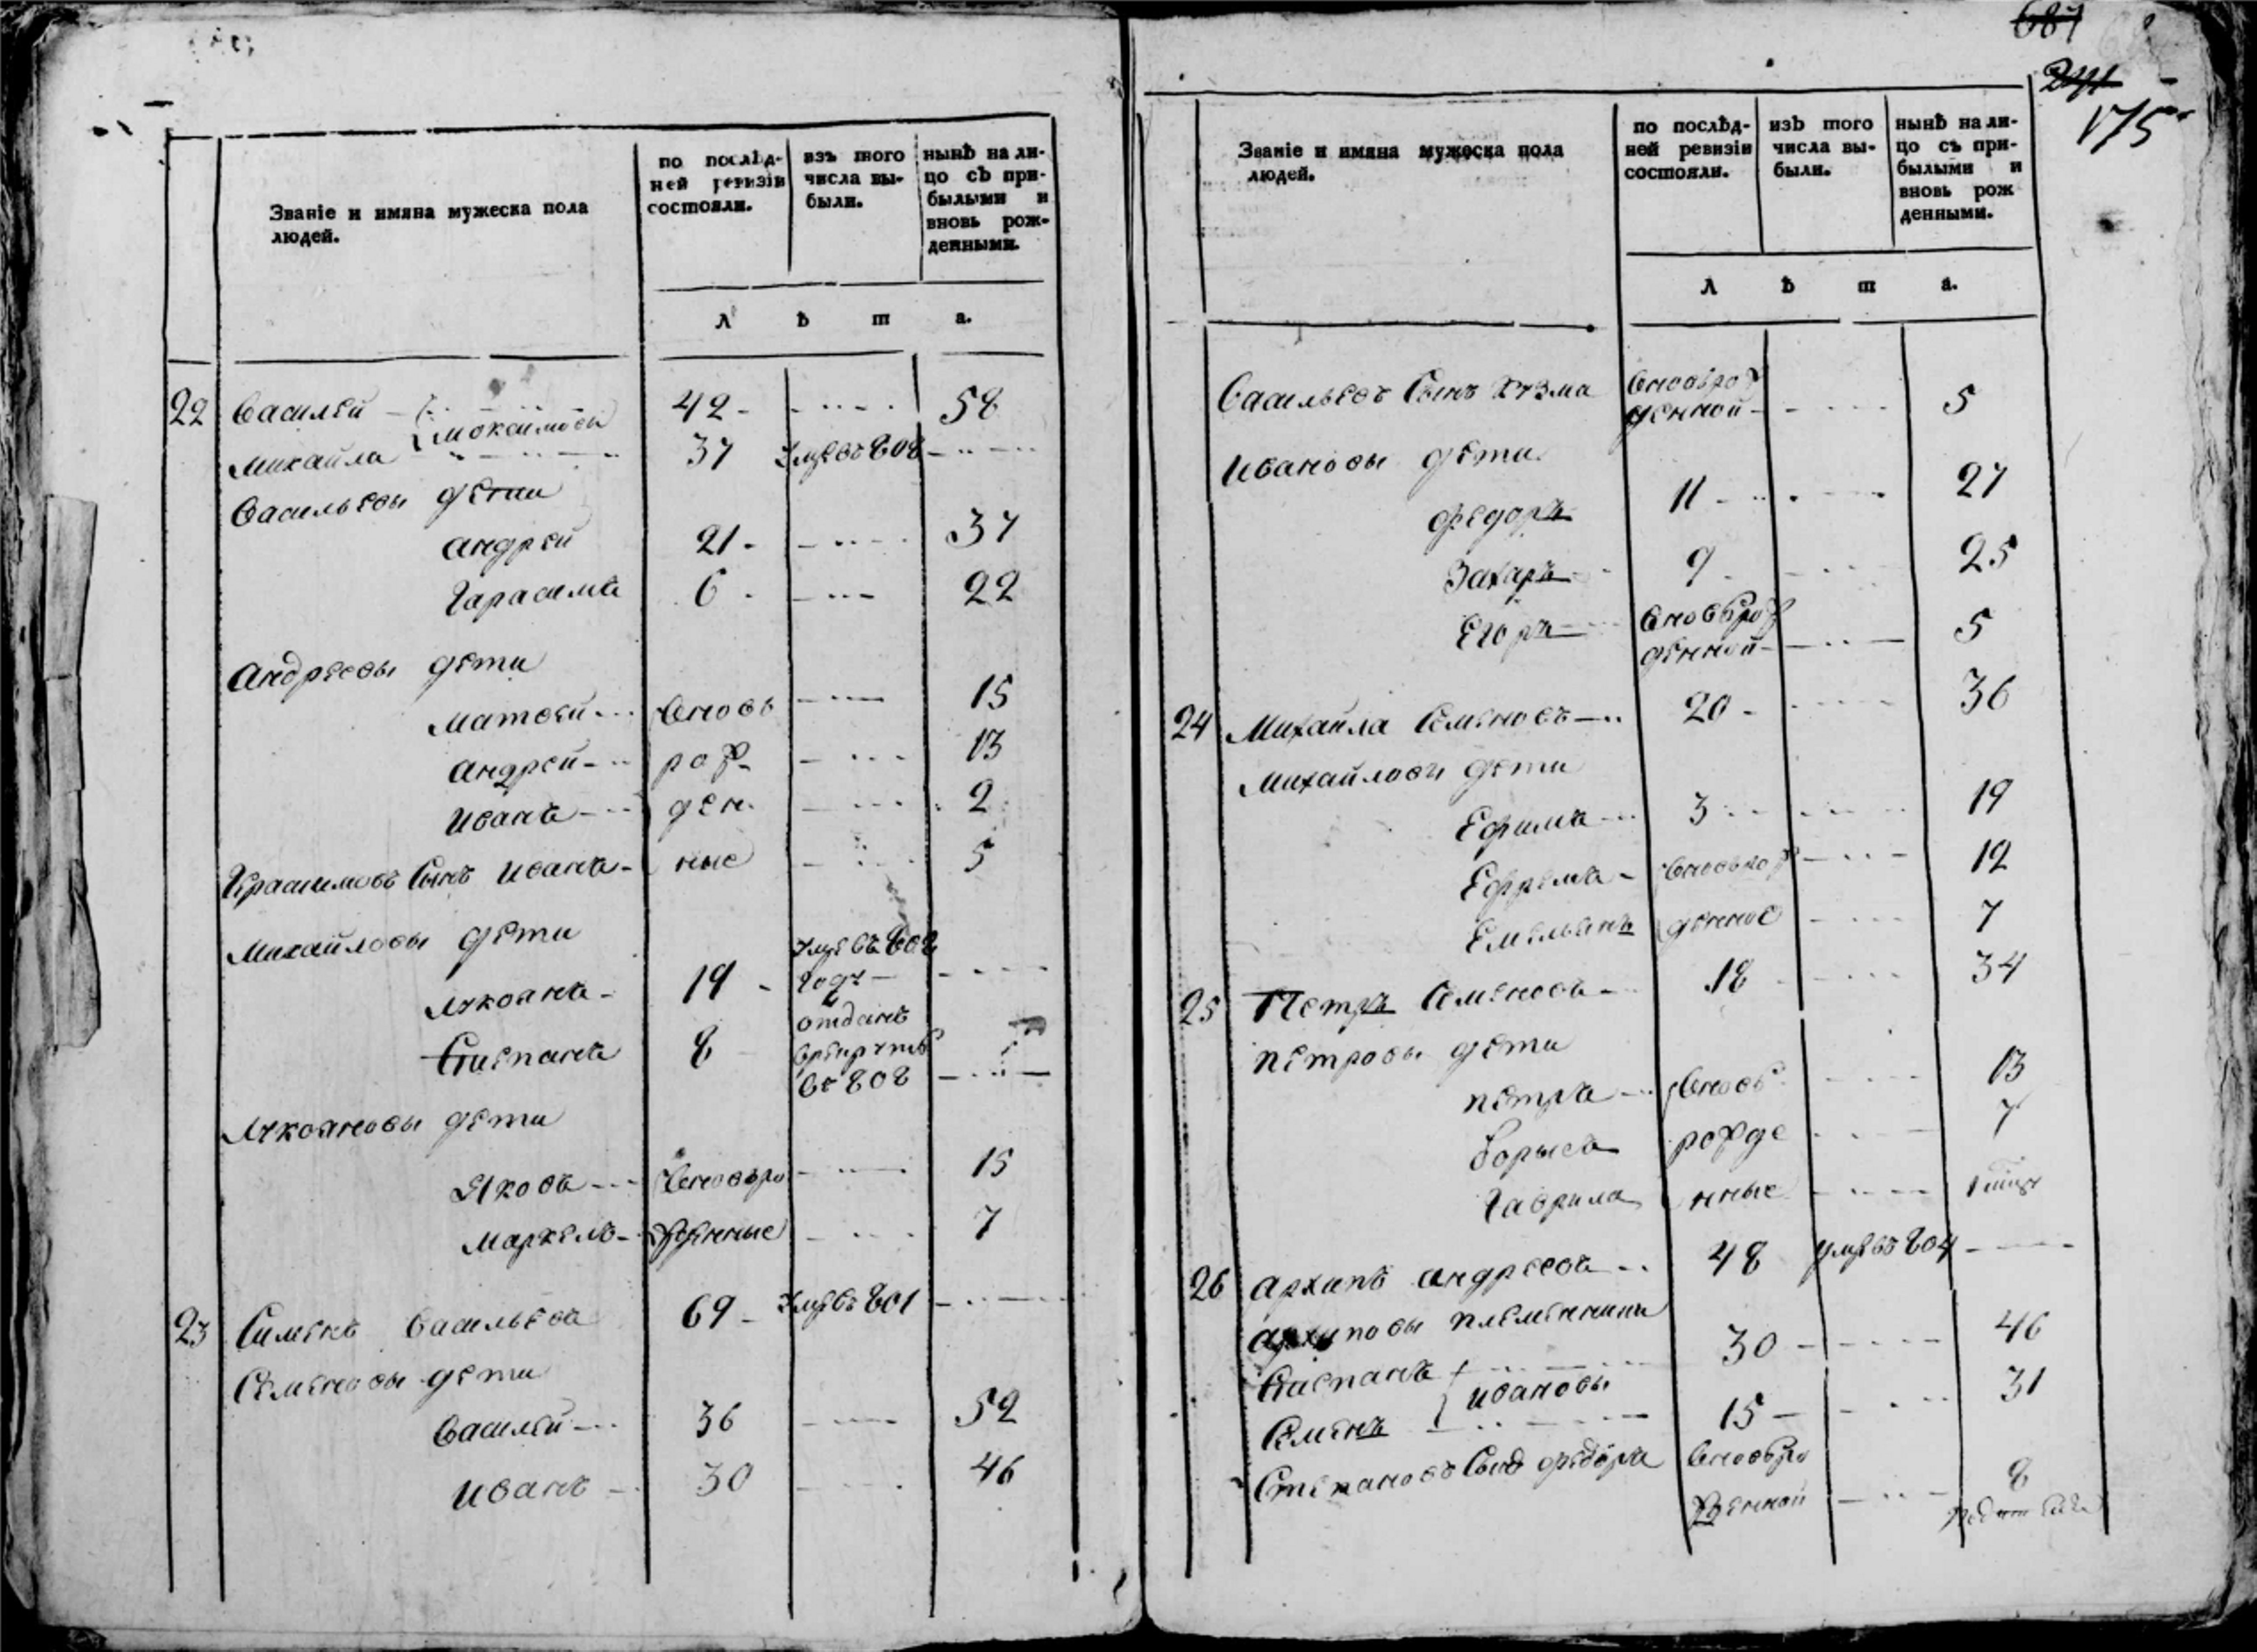 Званіе и имяна мужеска пола
людей.
по послѣд-
ней ревизіи
состояли.
изъ того
числа вы-
были.
нынѣ на ли-
цо съ при-
былыми и
вновь рож-
денными.
л ѣ т а.
22 Василей 42 58
Максимовы
Михайла 37 умре въ 808
Васильевы дети
Андрей 21 37
Гарасимъ 6 22
Андреевы дети
Матвей вновь 15
Андрей рож 13
Иванъ ден 2
Герасимовъ сынъ Иванъ ные 5
Михайловы дети
умре въ 808
Лукоянъ 19 году
отданъ
Степанъ 8 врекруты
въ 808
Лукояновы дети
Яковъ вновьро 15
Маркелъ жденные 7
23 Сименъ Васильевъ 69 умре въ 801
Семеновы дети
Василей 36 52
Иванъ 30 46
681
175
Званіе и имяна мужеска пола
людей.
по послѣд-
ней ревизіи
состояли.
изъ того
числа вы-
были.
нынѣ на ли-
цо съ при-
былыми и
вновь рож
денными.
л ѣ т а.
Васильевъ сынъ Кузма вновьрож
денной 5
Ивановы дети
Федоръ 11 27
Захаръ 9 25
Егоръ вновьрож
денной 5
24 Михайла Семеновъ 20 36
Михайловы дети
Ефимъ 3 19
Ефремъ вновьрож 12
Емельянъ денные 7
25 Петръ Семеновъ 18 34
Петровы дети
Петръ вновь 13
Борисъ рожде 7
Гаврила нные 1
26 Архипъ Андреевъ 48 умре въ 804
Архиповы племянники
Степанъ 30 46
Ивановы
Семенъ 15 31
Степановъ сынъ Федоръ вновьро
жденной 8